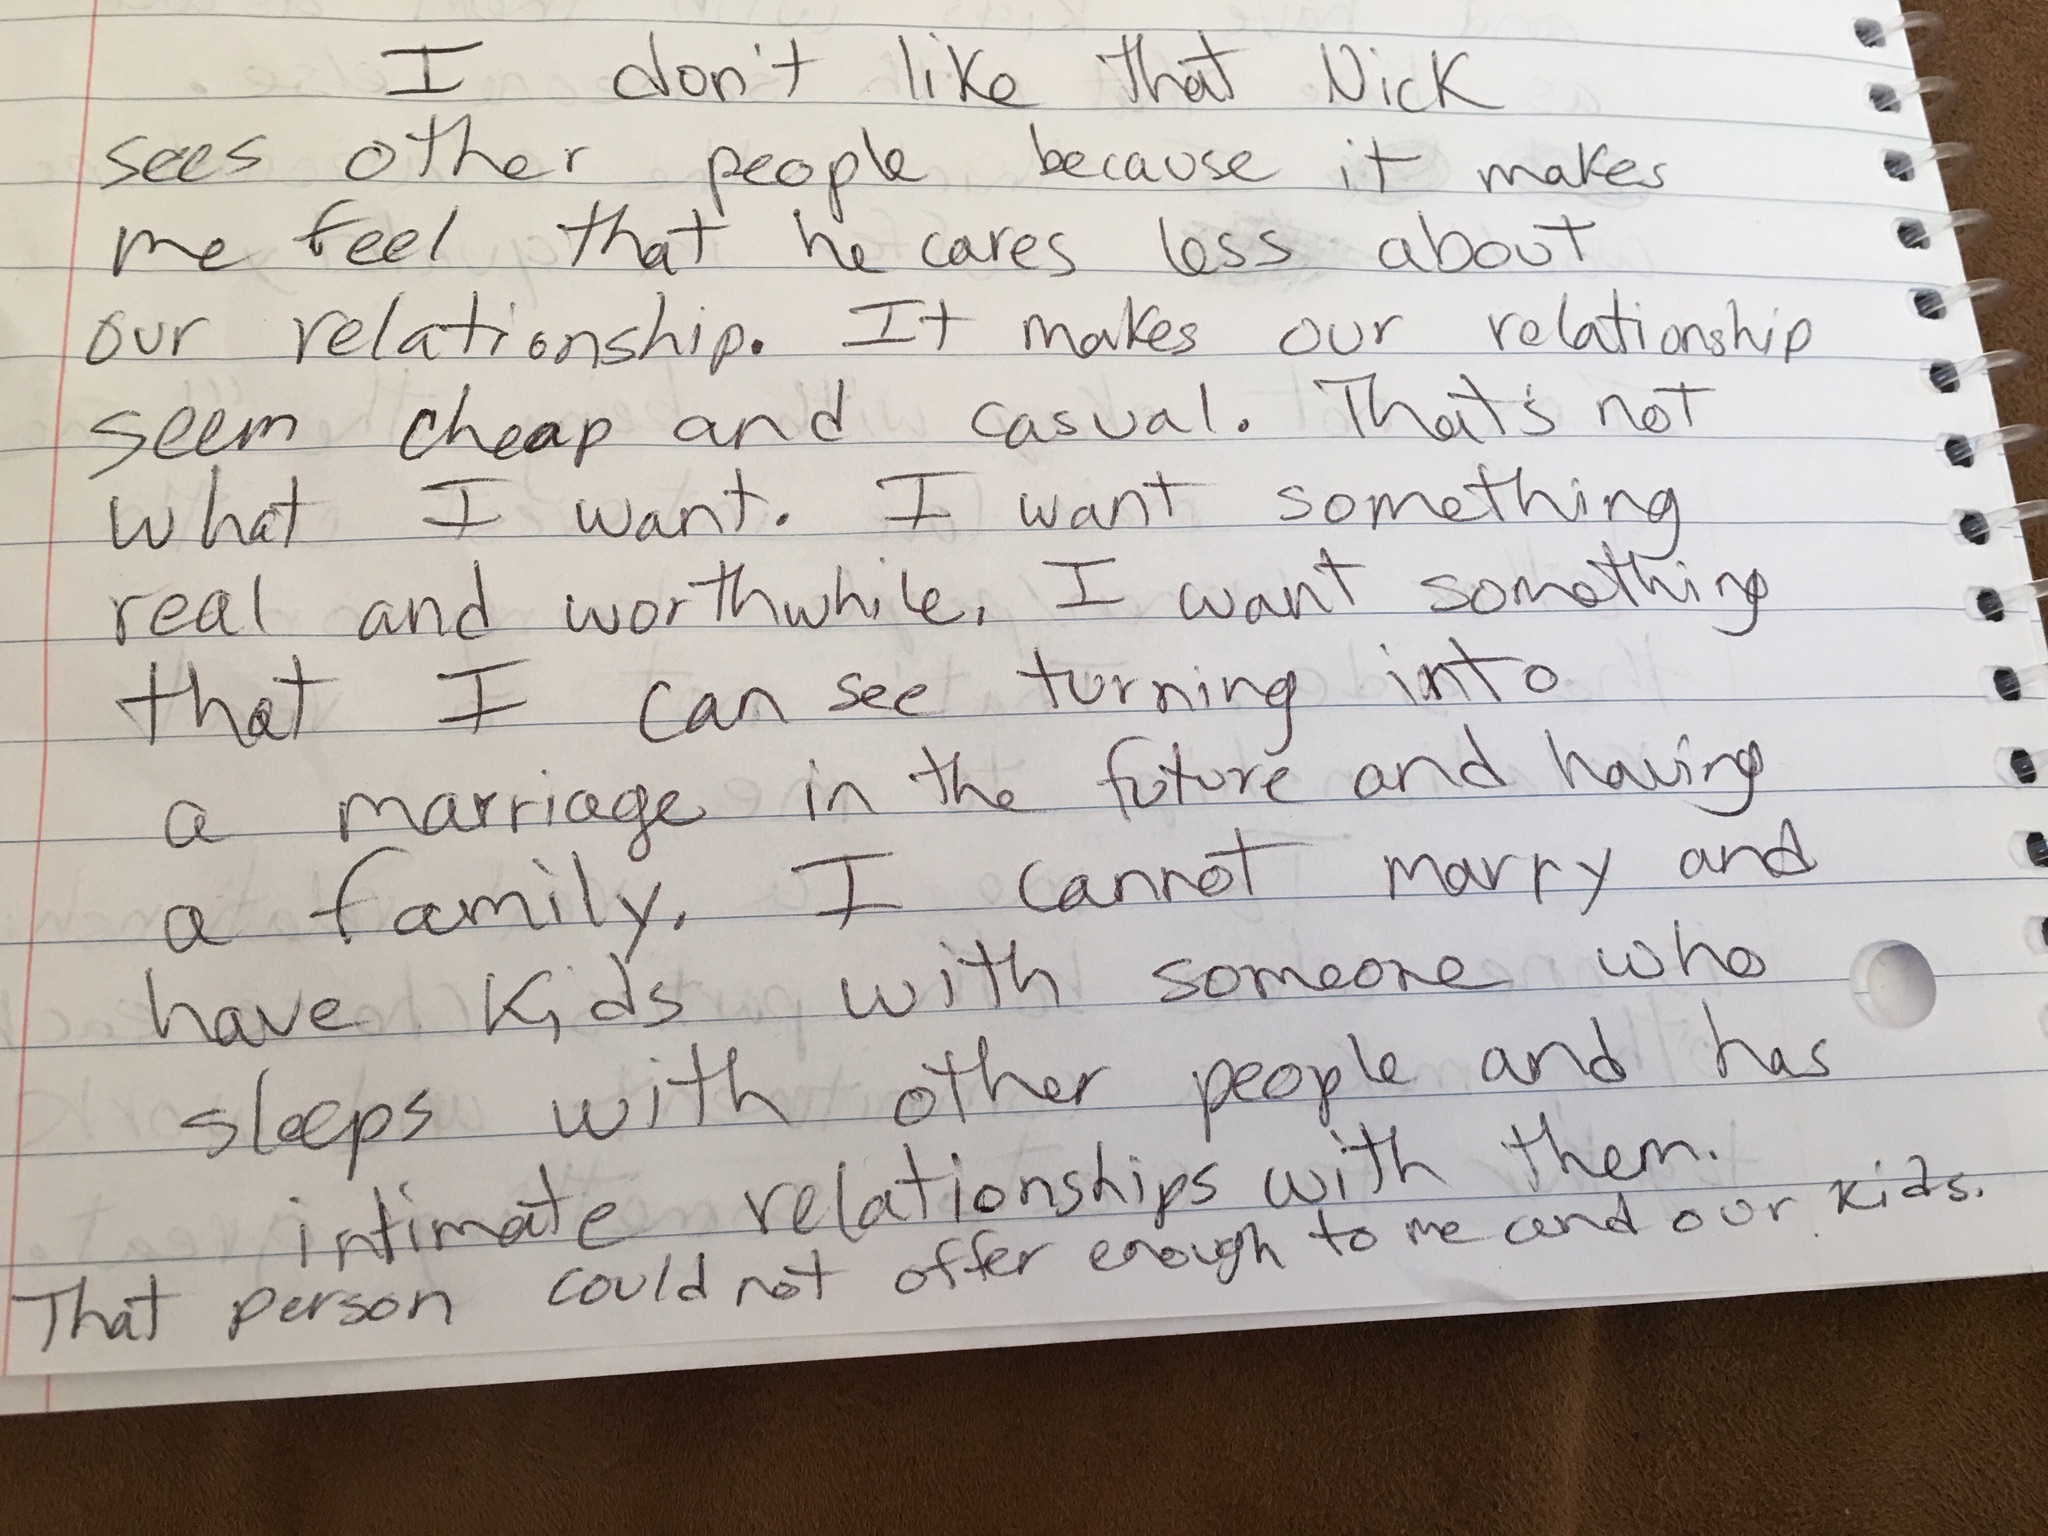 I don't like that Nick
sees other people because it makes
me feel that he cares less about
our relationship. It makes our relationship
seem cheap and casual. That's not
what I want. I want something
real and worthwhile. I want something
that I can see turning into
a marriage in the future and having
a family. I cannot marry and
have kids with someone who
sleeps with other people and has
intimate relationships with them.
That person could not offer enough to me and our kids.